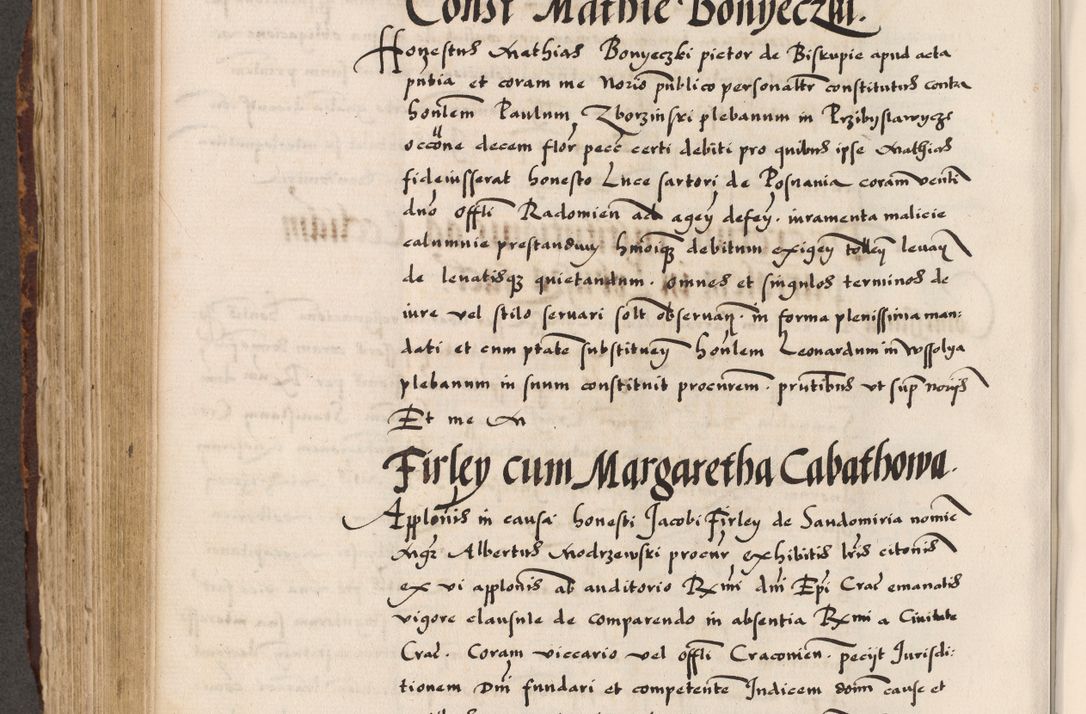 Const Mathie Bonyeczki.
Honestus Mathias Bonyeczki pictor de Biskupie apud acta
pñtia et coram me Norio publico personaltr constitutus contra
honlem Paulum Zborzinski plebanum in Przibyslawycze
occõne decem flor pecc certi debiti pro quibus ipse Mathias
fideiusserat honesto Luce sartori de Posnania coram venti
dno Offli Radomien ad ageñ defeñ. iuramenta malicie
calumnie prestandum hmoiqz debitum exigeñ tolleñ levañ
de levatisqz quietandum. omnes et singulos terminos de
iure vel stilo servari solt observañ. in forma plenissima man:
dati et cum ptate substitueñ honlem Leonardum in Wssolya
plebanum in suum constituit procurem. pntibus ut sup noris
Et me M
Firley cum Margaretha Cabathowa.
Applonis in causa honesti Jacobi Firley de Sandomiria nomie
Mgr Albertus Modrzewski procur exhibitis lris citonis
ex vi applonis ab auditorio Rmi dni Epi Crac emanatis
vigore clausule de comparendo in absentia Rmi a Civitate
Crac. Coram viccario vel offli Craconien. pecijt Jurisdi:
tionem Dni fundari et competente Judicem domi cause et